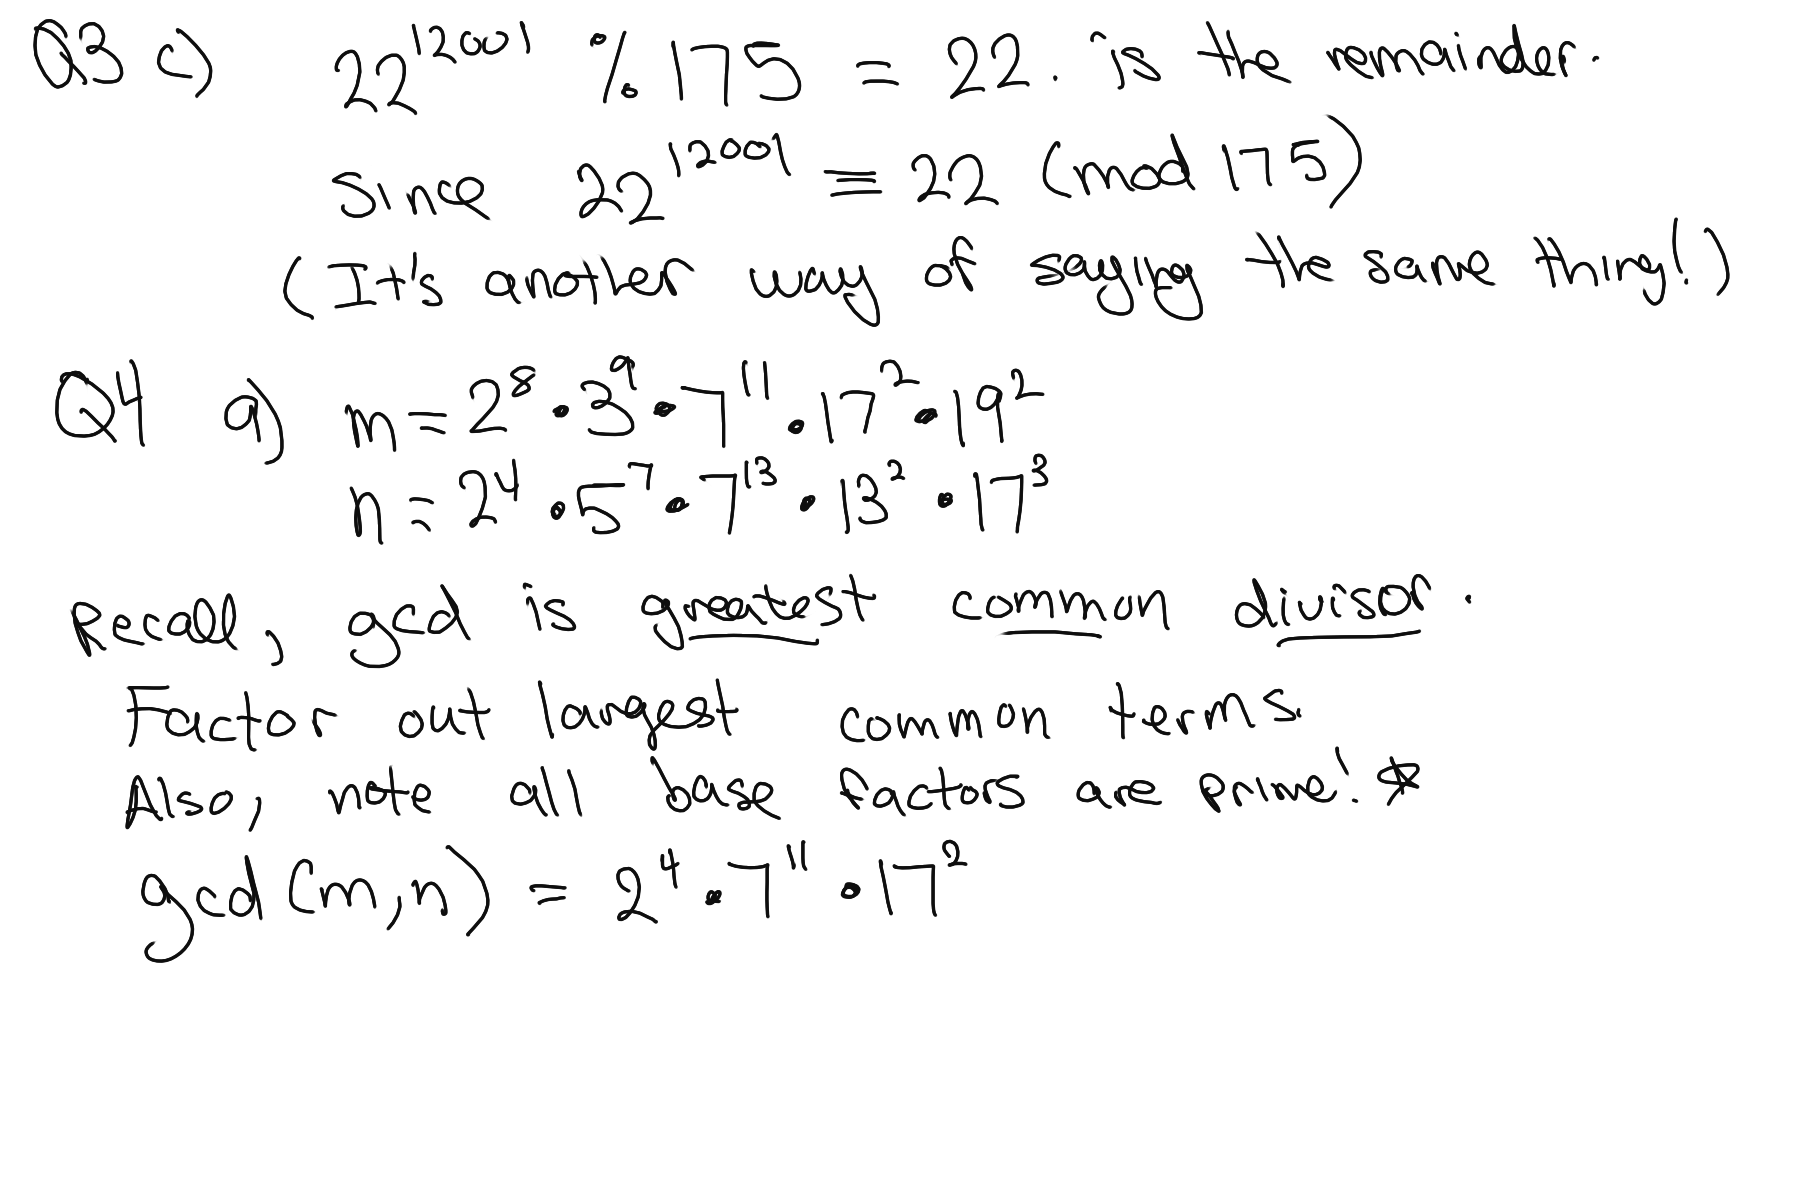 Q3 c) 22^12001 % 175 = 22. is the remainder.
Since 22^12001 ≡ 22 (mod 175)
(It's another way of saying the same thing!)
Q4 a) m = 2^8 • 3^9 • 7^11 • 17^2 • 19^2
n = 2^4 • 5^7 • 7^13 • 13^2 • 17^3
Recall, gcd is greatest common divisor.
Factor out largest common terms.
Also, note all base factors are prime! ☆
gcd (m,n) = 2^4 • 7^11 • 17^2